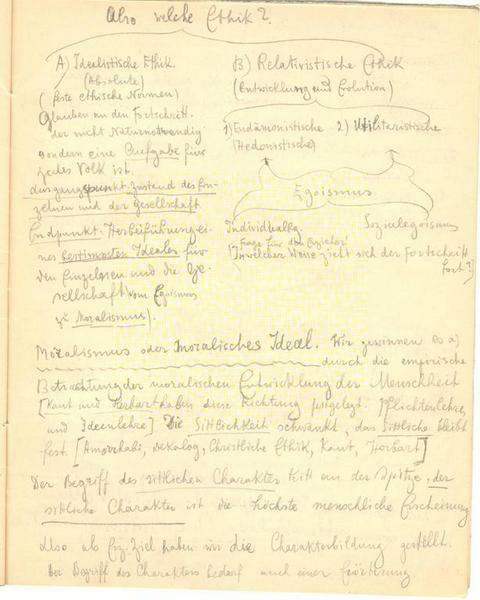 Also welche Ethik?
A) Idealistische Ethik.
(Absolute)
(feste ethische Normen)
Glauben an den Fortschritt.
der nicht Naturnotwendig
sondern eine Aufgabe für
jedes Volk ist.
Ausgangspunkt: Zustand des Ein-
zelnen und der Gesellschaft
Endpunkt: Herbeiführung ei-
nes bestimmten Ideales für
den Einzelnen und die Ge-
sellschaft (vom Egoismus
zu Moralismus).
B) Relativistische Ethik
(Entwicklung und Evolution)
1) Eudämonistische 2) Utilitaristische
(Hedonistische)
Egoismus
Individualeg. Sozialegoismus
Frage für den Erzieher:
In welcher Weise zieht sich der Fortschritt
fort?
Moralismus oder moralisches Ideal. Wir gewinnen es a)
durch die empirische
Betrachtung der moralischen Entwicklung der Menschheit
[Kant und Herbart haben diese Richtung festgelegt. Pflichtenlehre,
und Ideenlehre] Die Sittlichkeit schwankt, das Sittliche bleibt
fest. [Amorrhabi, Dekalog, Christliche Ethik, Kant, Herbart]
Der Begriff des sittlichen Charakters tritt an der Spitze, der
sittliche Charakter ist die höchste menschliche Erscheinung
Also als Erz. Ziel haben wir die Charakterbildung gestellt.
Der Begriff des Charakters bedarf auch einer Erörterung